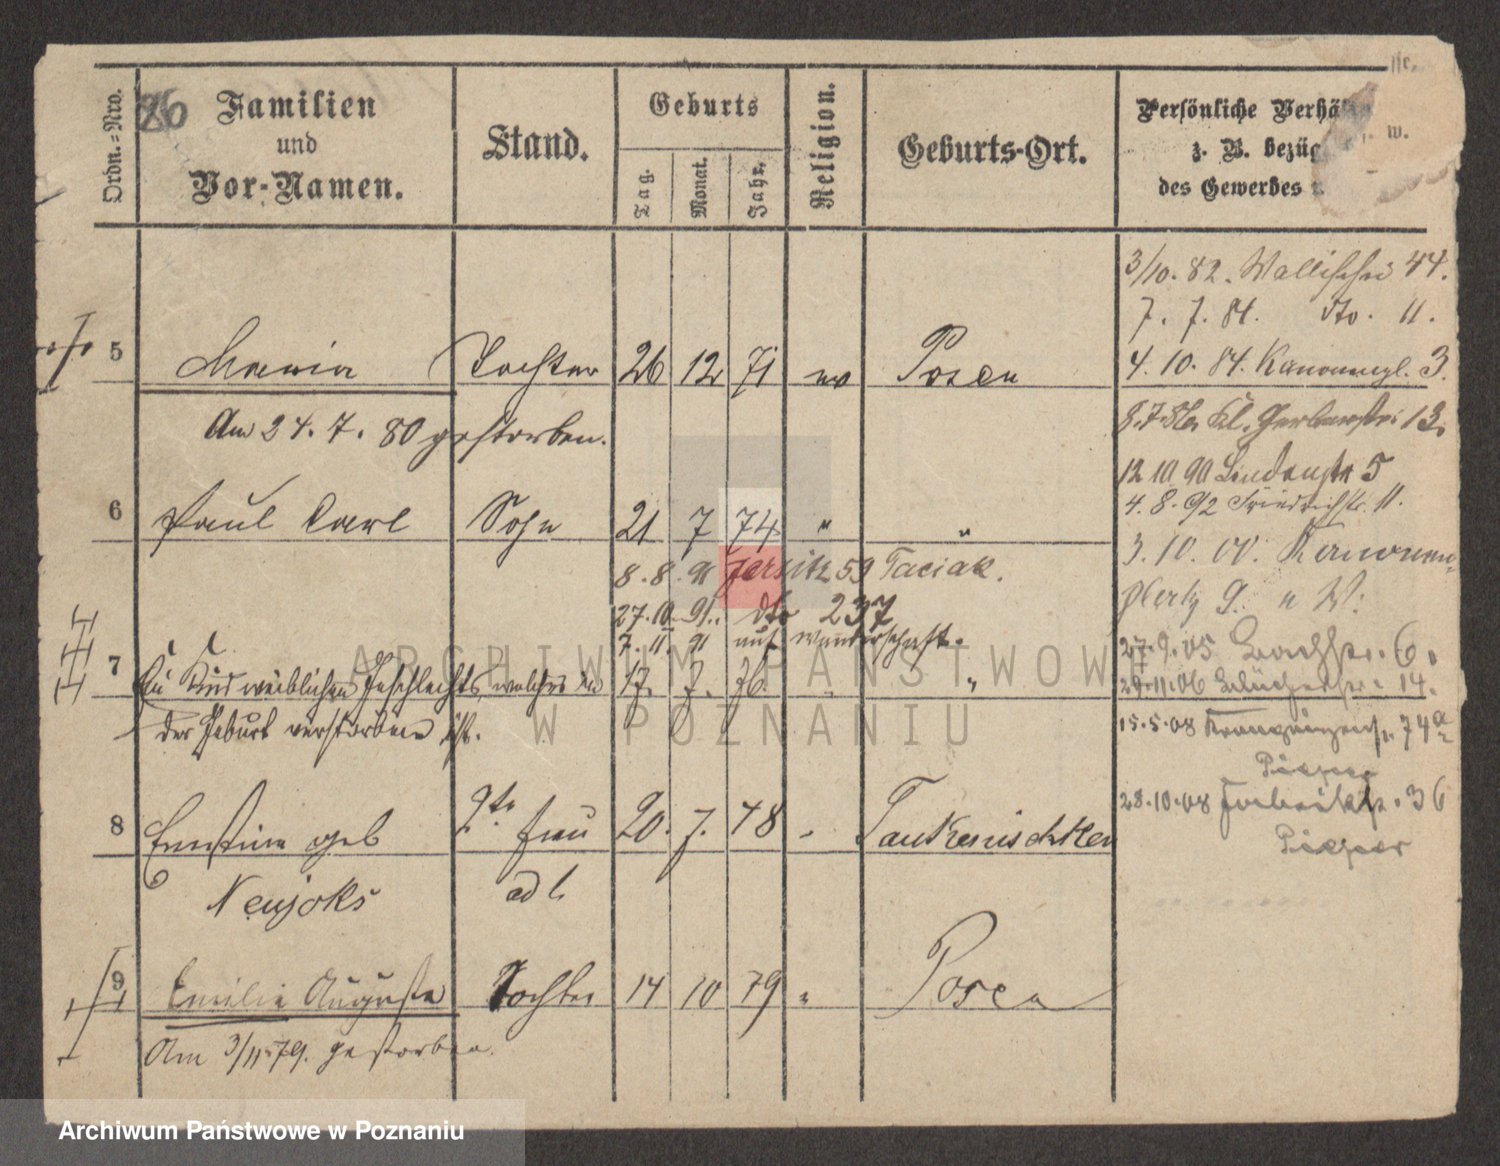 Ordn.=Nro.
Familien
und
Vor-Namen.
Stand.
Geburts
Tag.
Monat.
Jahr.
Religion.
Geburts-Ort.
Persönliche Verhä
z. B. bezüg
des Gewerbes
w.
3/10. 82. Wallischei 44.
7. 7. 84. dto. 11.
5 Maria Tochter 26 12 71 ev Posen
4. 10. 84. Kanonenpl. 3.
Am 24. 7. 80 gestorben.
Kl. Gerberstr. 13.
12 10 90 Lindenstr 5
4. 8. 92 Friedrichstr. 11.
6 Paul Carl Sohn 21 7 74 " "
3. 10. 00. Kanonen-
platz 9. u W.
8. 8. 91 Jersitz 59 Taciak.
27. 10. 91. dto 237
7. 11. 91 auf Wanderschaft.
7 Ein Kind weiblichen Geschlechts, welches in 17. 7. 76. "
der Geburt verstorben ist.
27. 9. 05 6.
29. 11. 06 Blücherstr. 14.
15. 5. 08 74a
28. 10. 08 Fabrikstr. 36
8 Ernstine geb frau 20. 7. 48 Tautkenischken
Neujoks
9 Emilie Auguste Tochter 14 10 79 " Posen
Am 3/11. 79. gestorben.
ARCHIWUM PAŃSTWOW
W POZNANIU
Archiwum Państwowe w Poznaniu